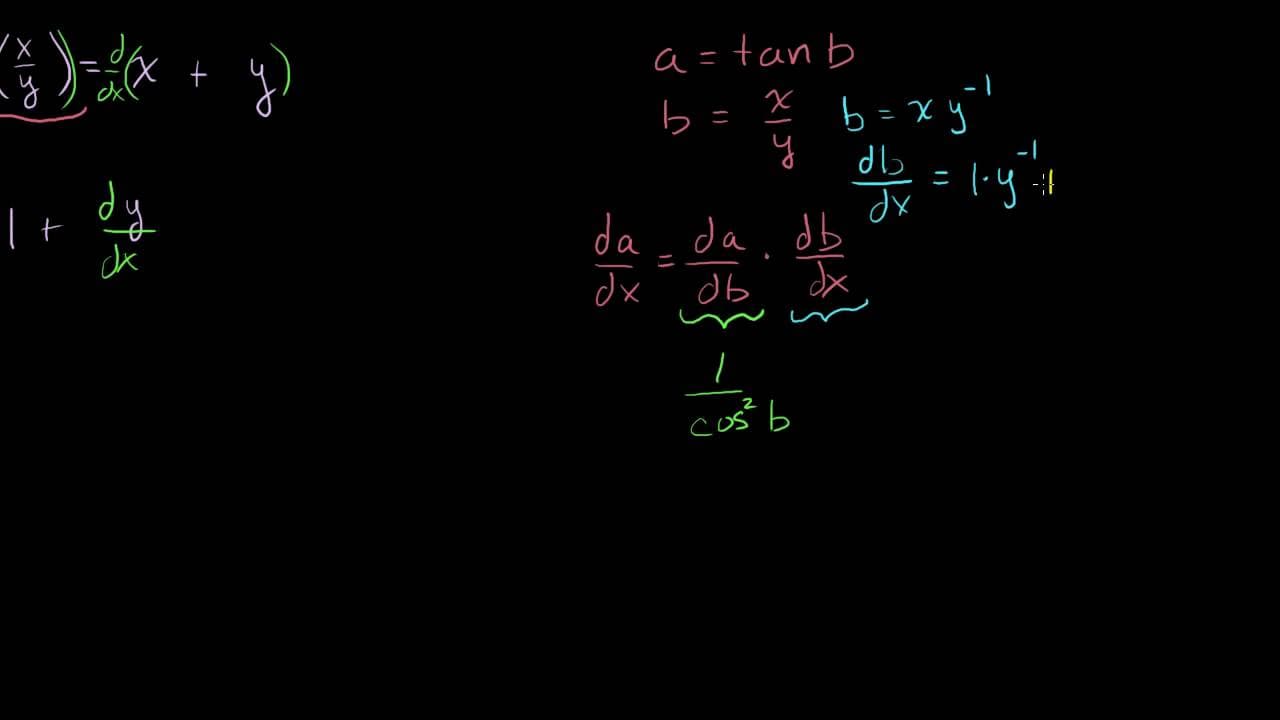 (x/y)) = d/dx(x + y)
1 + dy/dx
a = tan b
b = x/y
b = x y⁻¹
db/dx = 1·y⁻¹ -1
da/dx = da/db · db/dx
1/cos² b